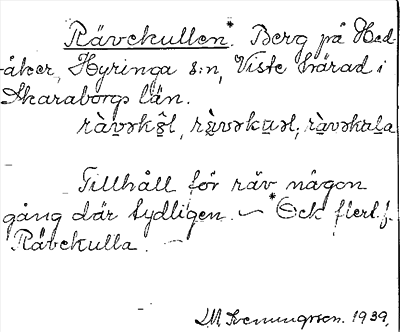 Rävekullen*. Berg på Hed-
åker, Hyringa s:n, Viste härad i
Skaraborgs län.
ràvəkəl, rävəkuəl; ràvəkuḷa
Tillhåll för räv någon
gång där tydligen. — *Ock flert. f.
Rävekulla. —
1939.